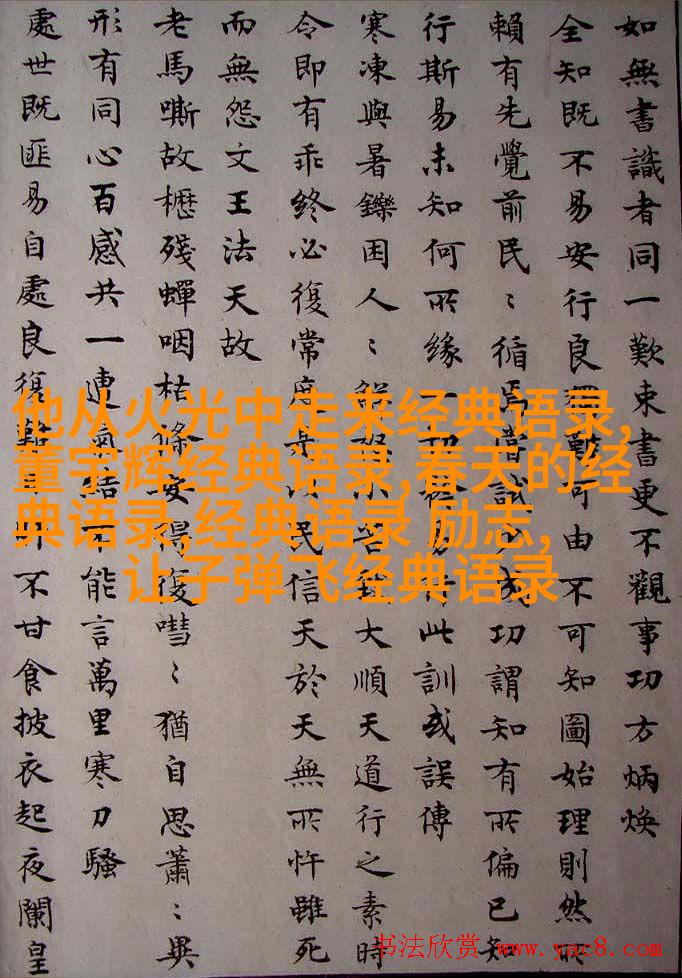 如無書識者同一歎束書更不觀事功方炳煥
全知既不易安行良難可由不可知圖始理則然所
賴有先覺前民〻循嘗試成功謂知有所偏已知
行斯易未知何所緣一切易行此訓或誤傳
寒凍與暑鑠困人〻怨小大順天道行之素時
令即有乖終必復常度以民信天於天無所忤雖死
而無怨文王法天故
老馬嘶故櫪殘蟬咽枯條安得復嘒〻猶自思蕭〻異
形有同心百感共一連氣結不能言萬里寒刀騷
處世既匪易自處良復難不甘食披衣起夜闌皇
他从火光中走来经典语录,
董宇辉经典语录,春天的经
典语录,经典语录 励志,
让子弹飞经典语录
书法欣赏 www.yac8.com